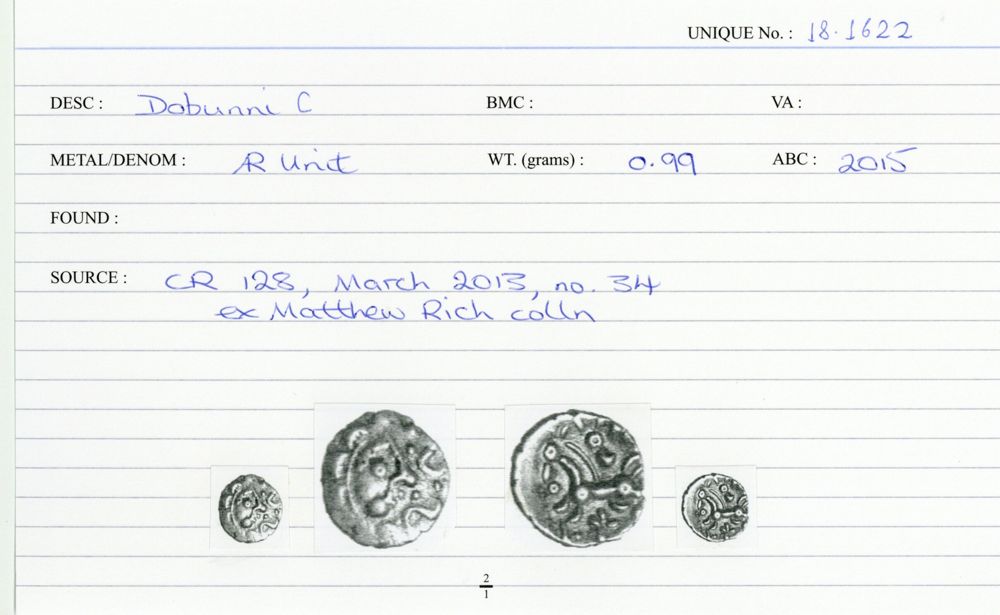 UNIQUE No. : 18.1622
DESC : Dobunni C BMC : VA :
METAL/DENOM : AR Unit WT. (grams) : 0.99 ABC : 2015
FOUND :
SOURCE : CR 128, March 2013, no. 34
ex Matthew Rich colln
2
1